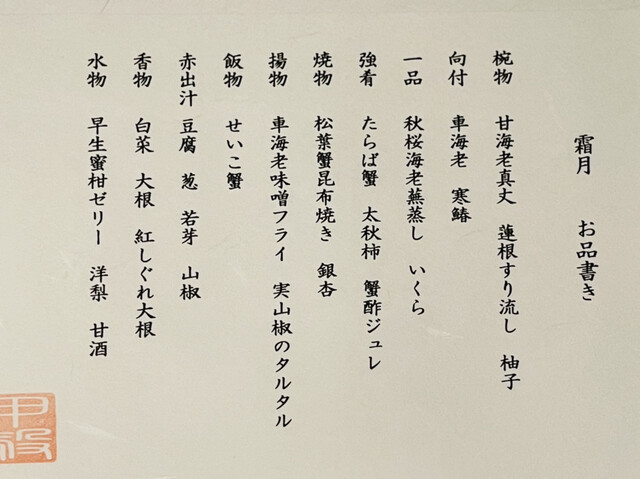 霜月　お品書き
椀物　甘海老真丈　蓮根すり流し　柚子
向付　車海老　寒鰆
一品　秋桜海老蕪蒸し　いくら
強肴　たらば蟹　太秋柿　蟹酢ジュレ
焼物　松葉蟹昆布焼き　銀杏
揚物　車海老味噌フライ　実山椒のタルタル
飯物　せいこ蟹
赤出汁　豆腐　葱　若芽　山椒
香物　白菜　大根　紅しぐれ大根
水物　早生蜜柑ゼリー　洋梨　甘酒
甲殻